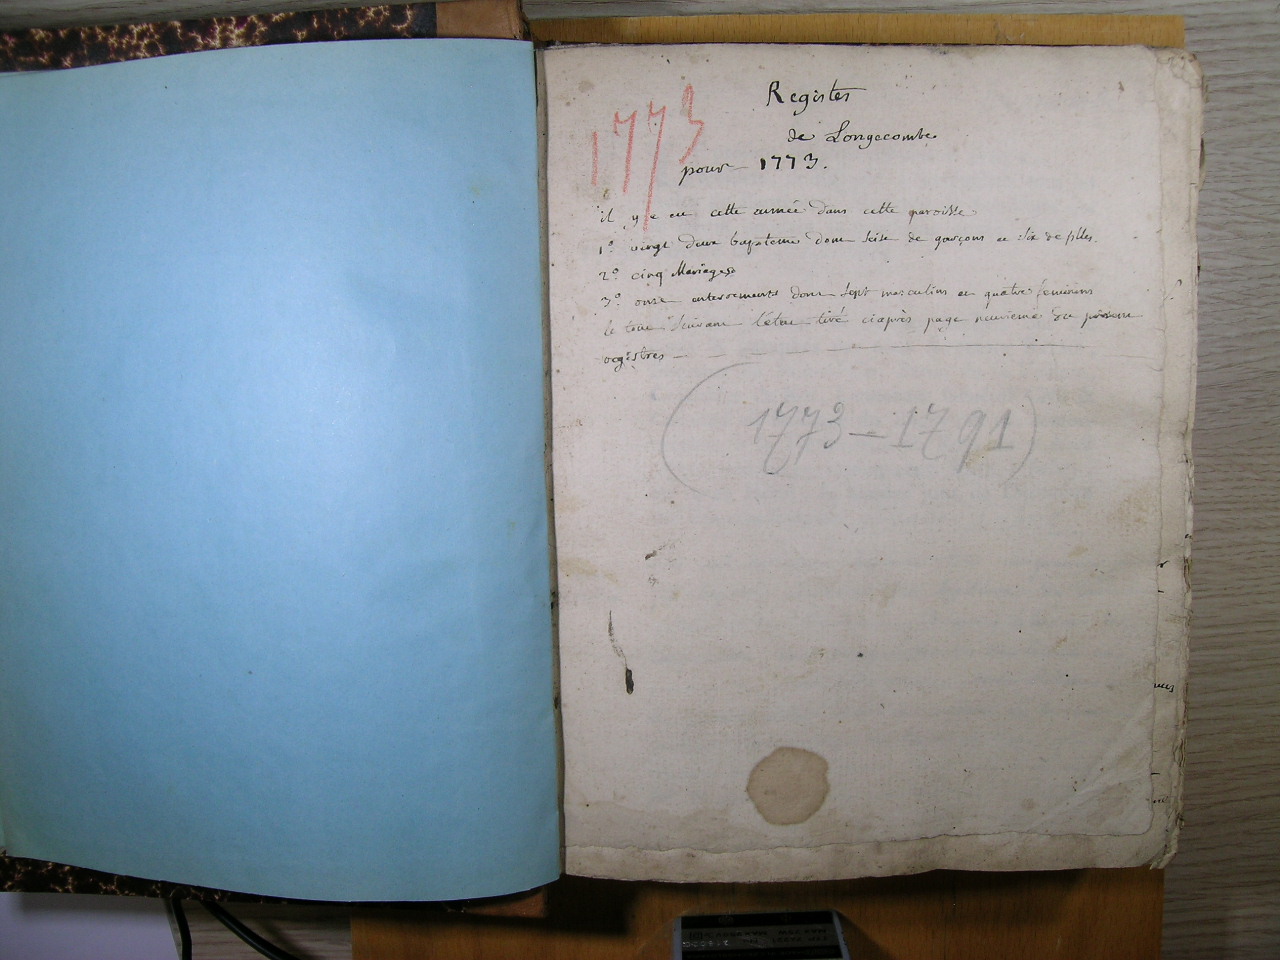 1773
Registes
de Longecombe
pour 1773.
il y a eu cette année dans cette paroisse
1.º vingt deux baptemes dont seise de garçons et six de filles.
2.º cinq Mariages
3.º onze enterrements dont sept masculins et quatre feminins
le tout suivant l'état tiré ciaprès page neuvieme du présent
registres
(1773-1791)